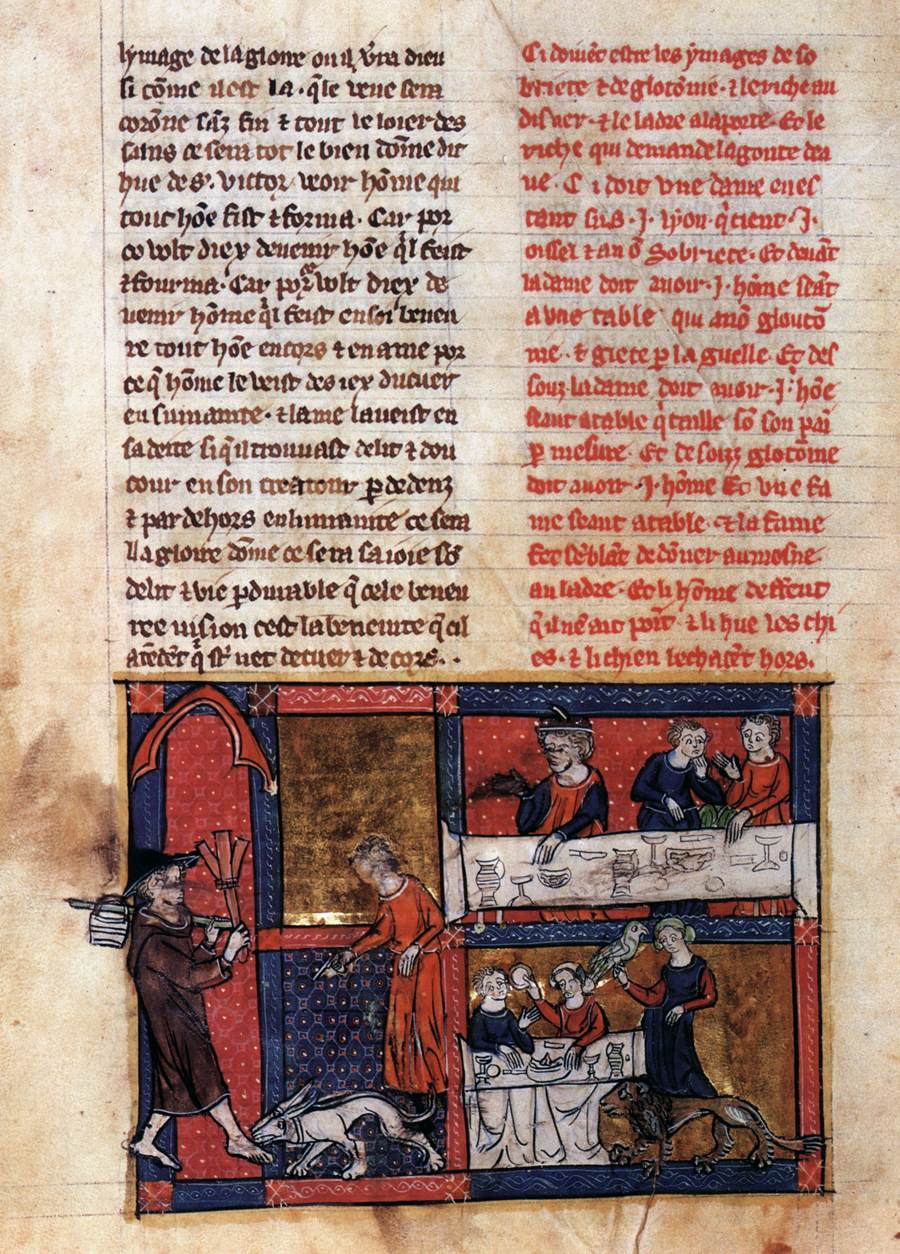 lymage de la gloire ou il verra dieu
si cōme il est la · q̄le veue sera
corōne sāz fin ⁊ tout le loier des
sains ce sera tot le bien dōme dit
hue de s'. victor veoir hōme qui
tout hōe fist ⁊ forma · Car por
ce volt diex devenir hōe
⁊ fourma · Car por volt diex de
venir hōme feist en soi beneu
re tout hōe en cors ⁊ en ame por
ce q̄ hōme le veist des iex du cuer
en sumanite · ⁊ lame la veist en
sa deite si q̄ il trouvast delit ⁊ dou
cour en son creatour p̱ dedenz
⁊ par dehors en lumanite ce sera
la gloire dōme ce sera sa ioie ses
delit ⁊ vie p̱durable q̄ cele beneu
ree vision cest la beneurte q̄ cil
atēdēt q̄ st' net de cuer ⁊ de cors · ·
Ci doivēt estre les ymages de so
briete ⁊ de glotōnie · ⁊ le riche au
disner · ⁊ le ladre a la porte · Et le
riche qui demande la goute dea
ue · Ci doit vne dame en es
tant sus · J · lyon · q̄ tient · J ·
oissel ⁊ a nō Sobriete · Et devāt
la dame doit avoir · J · hōme seāt
a vne table qui a nō gloutō
nie · ⁊ giete p̱ la guelle · Et des
souz la dame doit avoir · J · hōe
seant a table q̄ taille sō son pain
p̱ mesure · Et desouz glotōnie
doit avoir · J · hōme Et vne fa
me seant a table · ⁊ la fame
fet sēblāt de dōner aumosne
au ladre · Et li hōme deffent
q̄ il nen ait poīt · ⁊ li hue les chi
ens · ⁊ li chien le chacēt hors ·